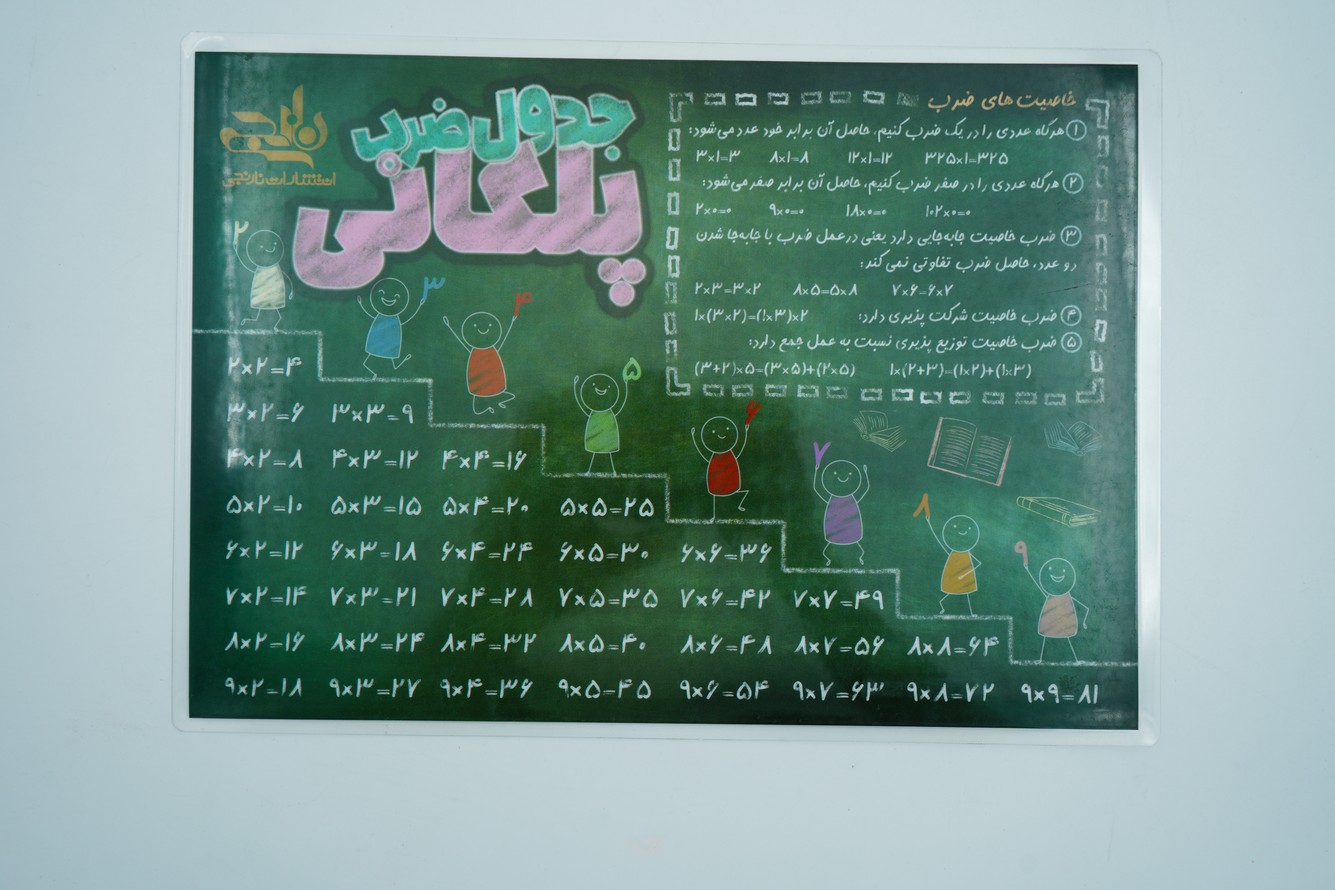 نارنجی
انتشارات نارنجی
جدول ضرب
پلکانی
خاصیت های ضرب
۱ هرگاه عددی را در یک ضرب کنیم، حاصل آن برابر خود عدد می‌شود:
۳×۱=۳ ۸×۱=۸ ۱۲×۱=۱۲ ۳۲۵×۱=۳۲۵
۲ هرگاه عددی را در صفر ضرب کنیم، حاصل آن برابر صفر می‌شود:
۲×۰=۰ ۹×۰=۰ ۱۸×۰=۰ ۱۰۲×۰=۰
۳ ضرب خاصیت جابه‌جایی دارد یعنی در عمل ضرب با جابه‌جا شدن
دو عدد، حاصل ضرب تفاوتی نمی کند:
۲×۳=۳×۲ ۸×۵=۵×۸ ۷×۶=۶×۷
۴ ضرب خاصیت شرکت پذیری دارد: ۱×(۳×۲)=(۱×۳)×۲
۵ ضرب خاصیت توزیع پذیری نسبت به عمل جمع دارد:
(۳+۲)×۵=(۳×۵)+(۲×۵) ۱×(۲+۳)=(۱×۲)+(۱×۳)
۲
۳
۴
۵
۶
۷
۸
۹
۲×۲=۴
۳×۲=۶ ۳×۳=۹
۴×۲=۸ ۴×۳=۱۲ ۴×۴=۱۶
۵×۲=۱۰ ۵×۳=۱۵ ۵×۴=۲۰ ۵×۵=۲۵
۶×۲=۱۲ ۶×۳=۱۸ ۶×۴=۲۴ ۶×۵=۳۰ ۶×۶=۳۶
۷×۲=۱۴ ۷×۳=۲۱ ۷×۴=۲۸ ۷×۵=۳۵ ۷×۶=۴۲ ۷×۷=۴۹
۸×۲=۱۶ ۸×۳=۲۴ ۸×۴=۳۲ ۸×۵=۴۰ ۸×۶=۴۸ ۸×۷=۵۶ ۸×۸=۶۴
۹×۲=۱۸ ۹×۳=۲۷ ۹×۴=۳۶ ۹×۵=۴۵ ۹×۶=۵۴ ۹×۷=۶۳ ۹×۸=۷۲ ۹×۹=۸۱